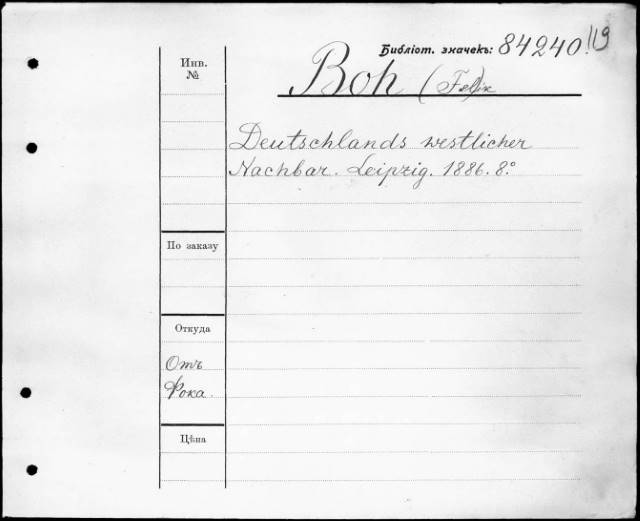 Библіот. значекъ: 84240.119
Инв.
№
Boh (Felix
Deutschlands westlicher
Nachbar. Leipzig. 1886. 8°
По заказу
Откуда
Отъ
Фока.
Цѣна